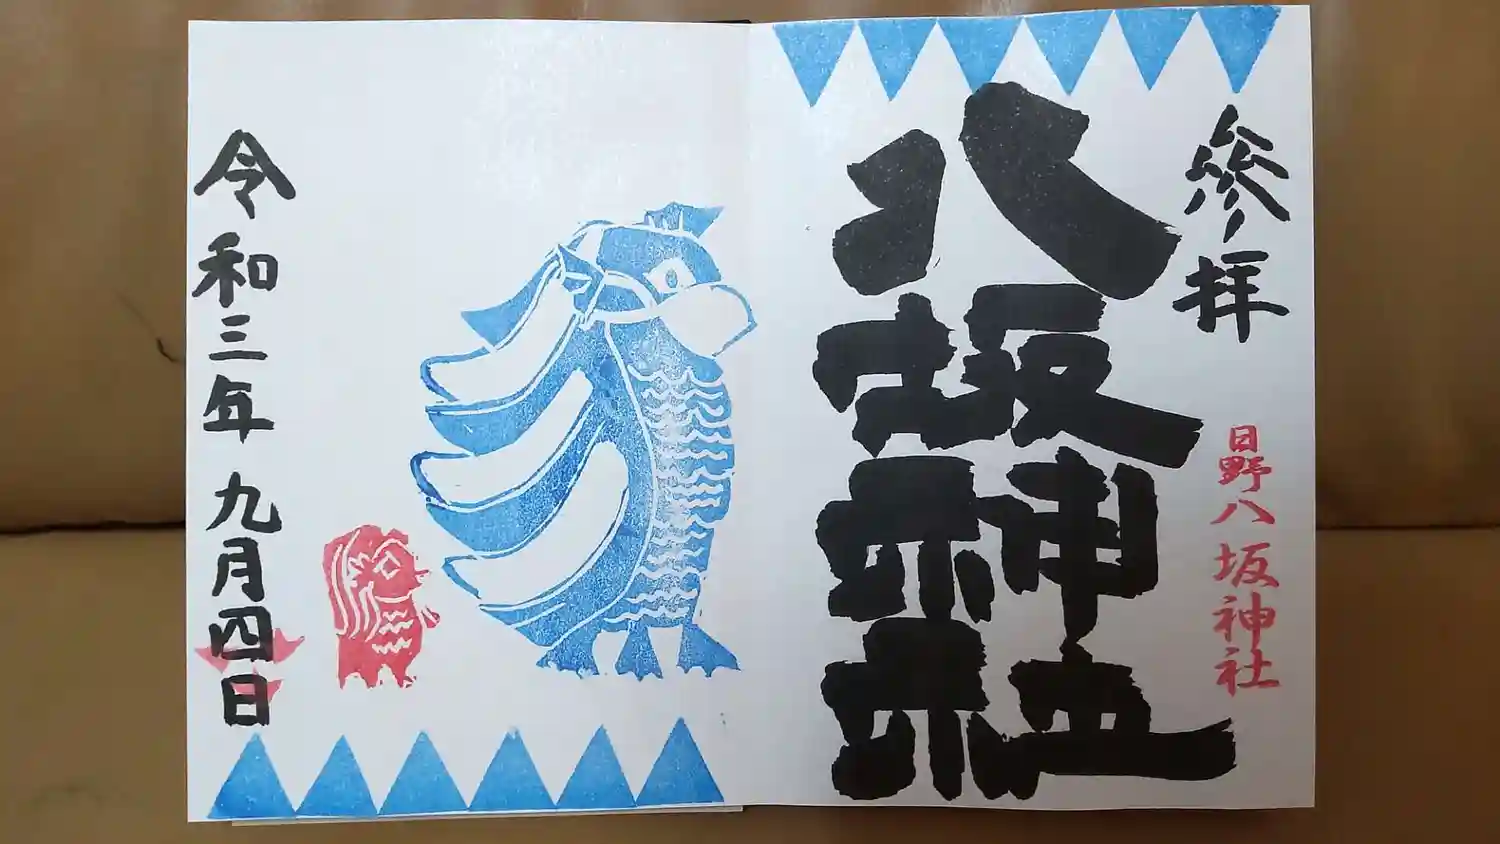 參拝
日野八坂神社
八坂神社
令和三年九月四日